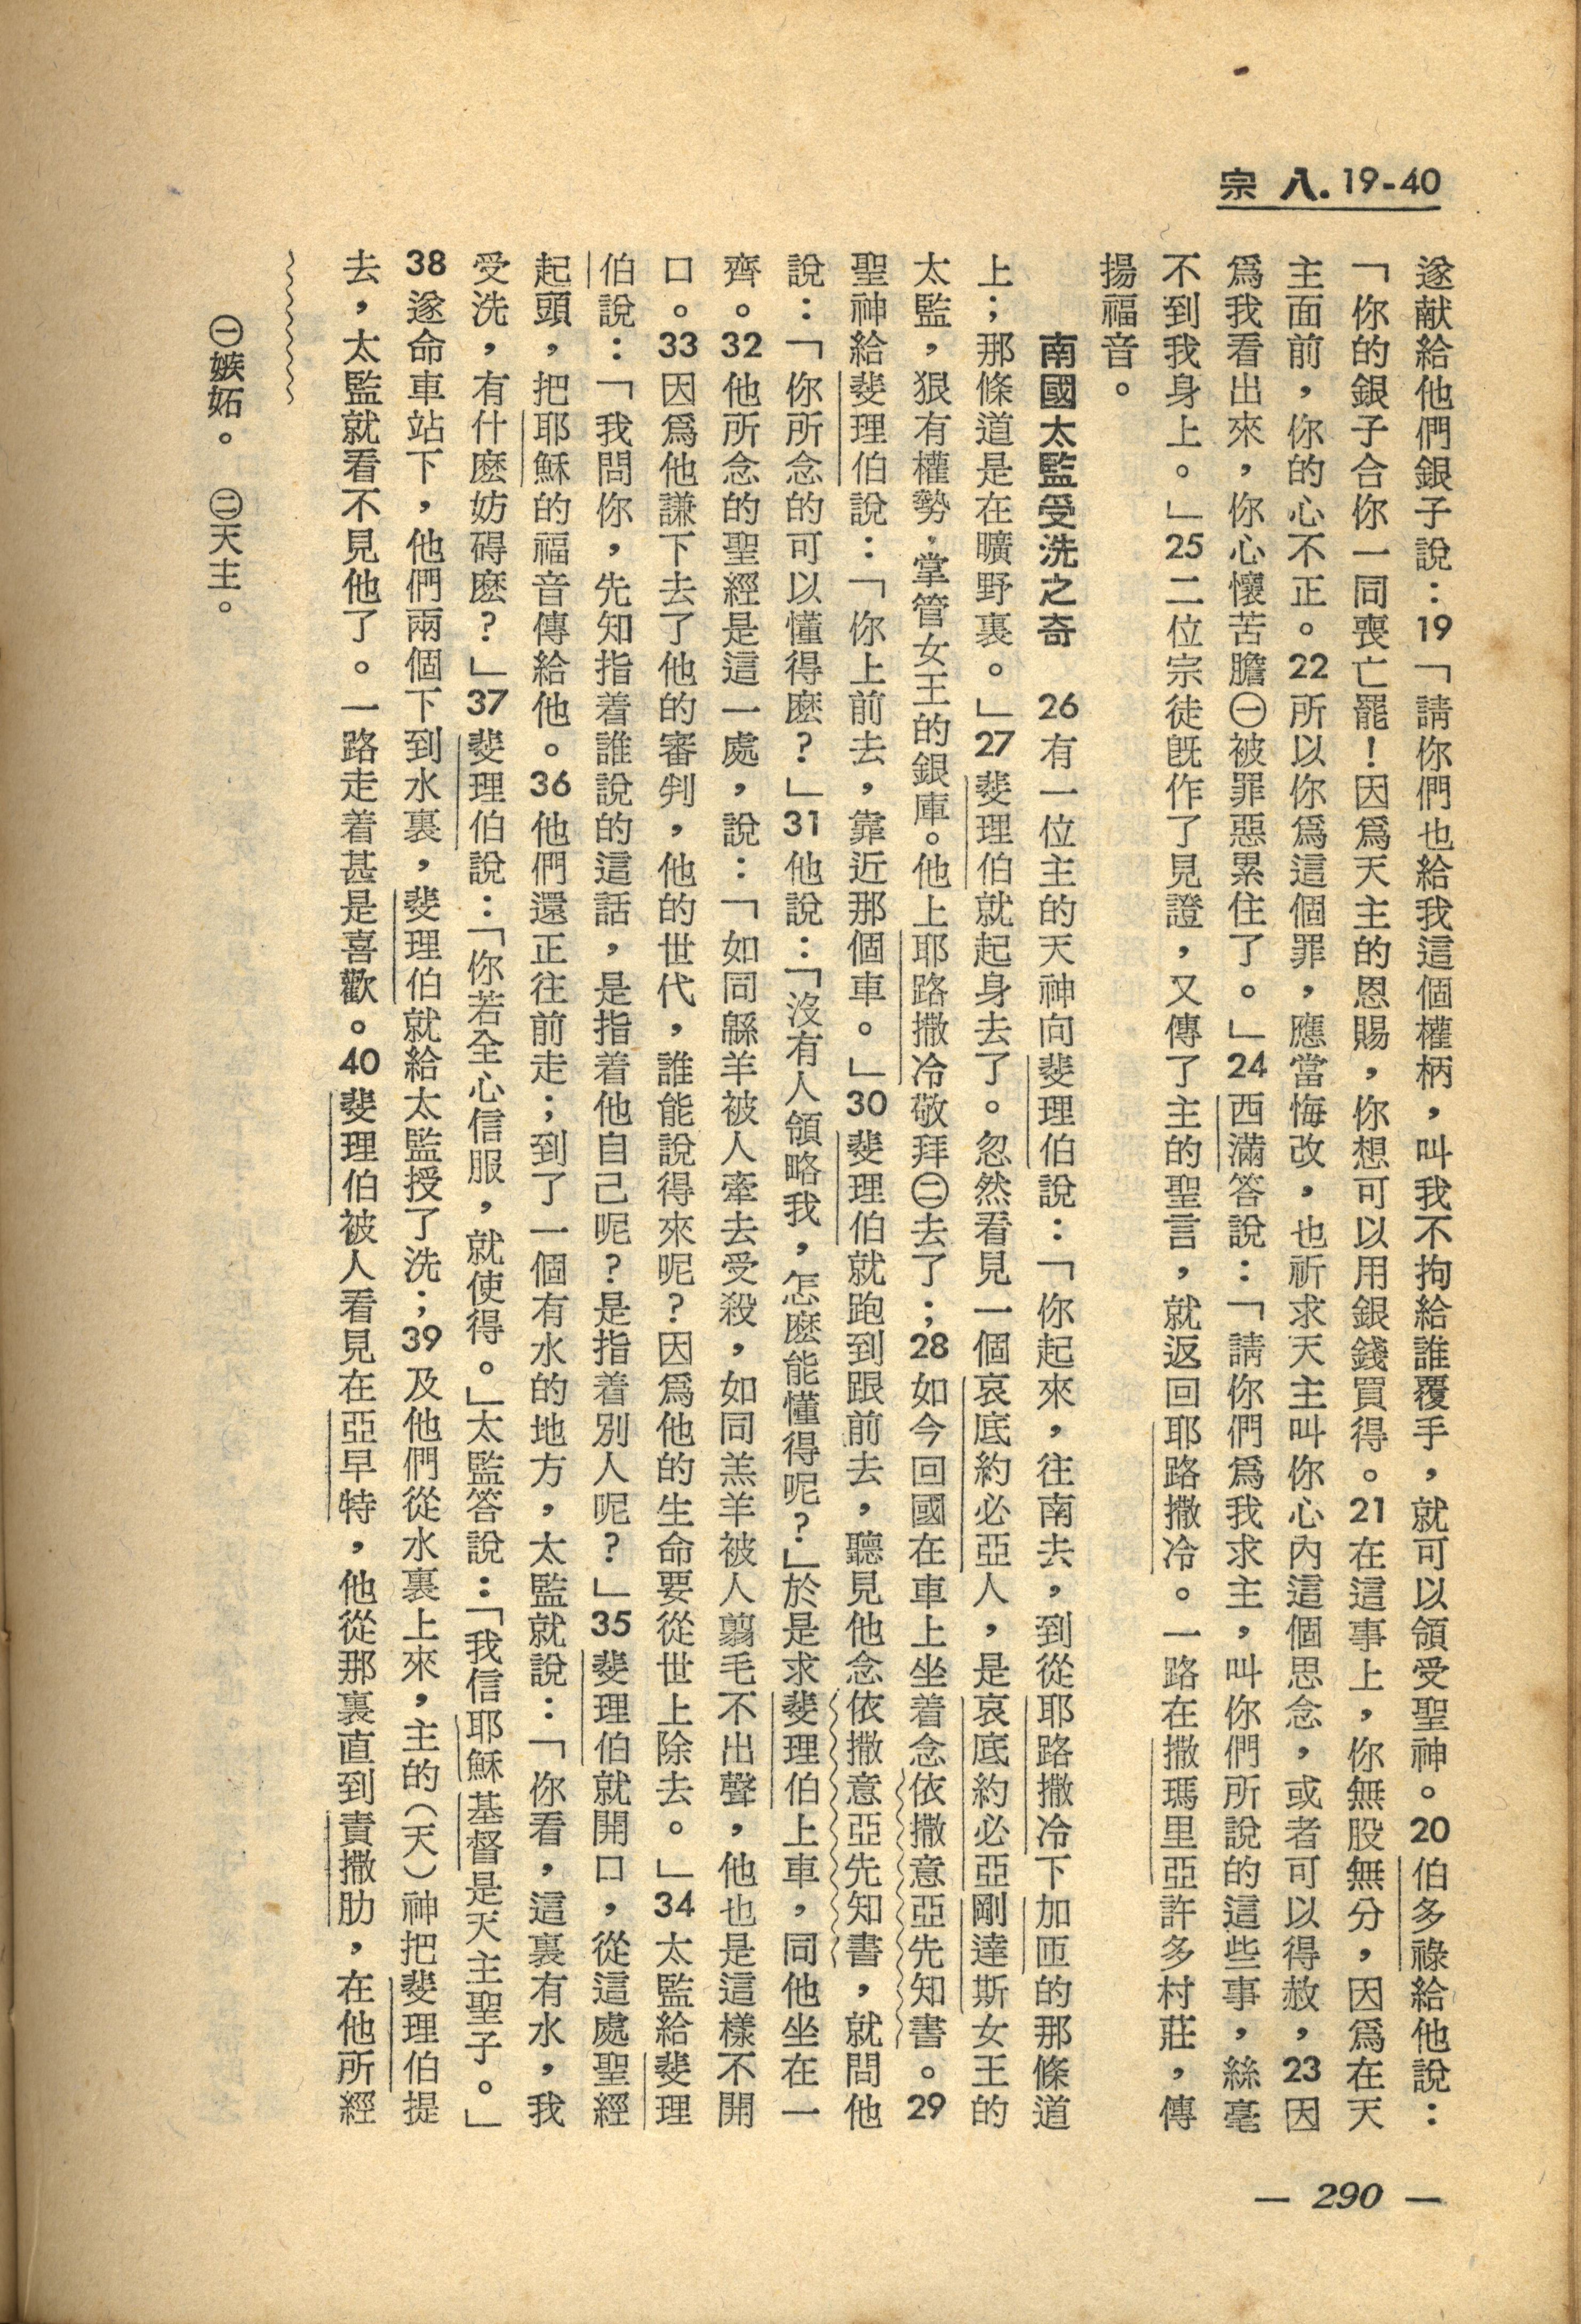 宗 八. 19-40
遂献給他們銀子說：19「請你們也給我這個權柄，叫我不拘給誰覆手，就可以領受聖神。20伯多祿給他說：
「你的銀子合你一同喪亡罷！因爲天主的恩賜，你想可以用銀錢買得。21在這事上，你無股無分，因爲在天
主面前，你的心不正。22所以你爲這個罪，應當悔改，也祈求天主叫你心內這個思念，或者可以得赦，23因
爲我看出來，你心懷苦膽㊀被罪惡累住了。」24西滿答說：「請你們爲我求主，叫你們所說的這些事，絲毫
不到我身上。」25二位宗徒旣作了見證，又傳了主的聖言，就返回耶路撒冷。一路在撒瑪里亞許多村莊，傳
揚福音。
南國太監受洗之奇　26有一位主的天神向斐理伯說：「你起來，往南去，到從耶路撒冷下加匝的那條道
上；那條道是在曠野裏。」27斐理伯就起身去了。忽然看見一個哀底約必亞人，是哀底約必亞剛達斯女王的
太監，狠有權勢，掌管女王的銀庫。他上耶路撒冷敬拜㊁去了；28如今回國在車上坐着念依撒意亞先知書。29
聖神給斐理伯說：「你上前去，靠近那個車。」30斐理伯就跑到跟前去，聽見他念依撒意亞先知書，就問他
說：「你所念的可以懂得麽？」31他說：「沒有人領略我，怎麽能懂得呢？」於是求斐理伯上車，同他坐在一
齊。32他所念的聖經是這一處，說：「如同緜羊被人牽去受殺，如同羔羊被人翦毛不出聲，他也是這樣不開
口。33因爲他謙下去了他的審判，他的世代，誰能說得來呢？因爲他的生命要從世上除去。」34太監給斐理
伯說：「我問你，先知指着誰說的這話，是指着他自己呢？是指着別人呢？」35斐理伯就開口，從這處聖經
起頭，把耶穌的福音傳給他。36他們還正往前走；到了一個有水的地方，太監就說：「你看，這裏有水，我
受洗，有什麽妨碍麽？」37斐理伯說：「你若全心信服，就使得。」太監答說：「我信耶穌基督是天主聖子。」
38遂命車站下，他們兩個下到水裏，斐理伯就給太監授了洗；39及他們從水裏上來，主的（天）神把斐理伯提
去，太監就看不見他了。一路走着甚是喜歡。40斐理伯被人看見在亞早特，他從那裏直到責撒肋，在他所經
㊀嫉妬。　㊁天主。
— 290 —